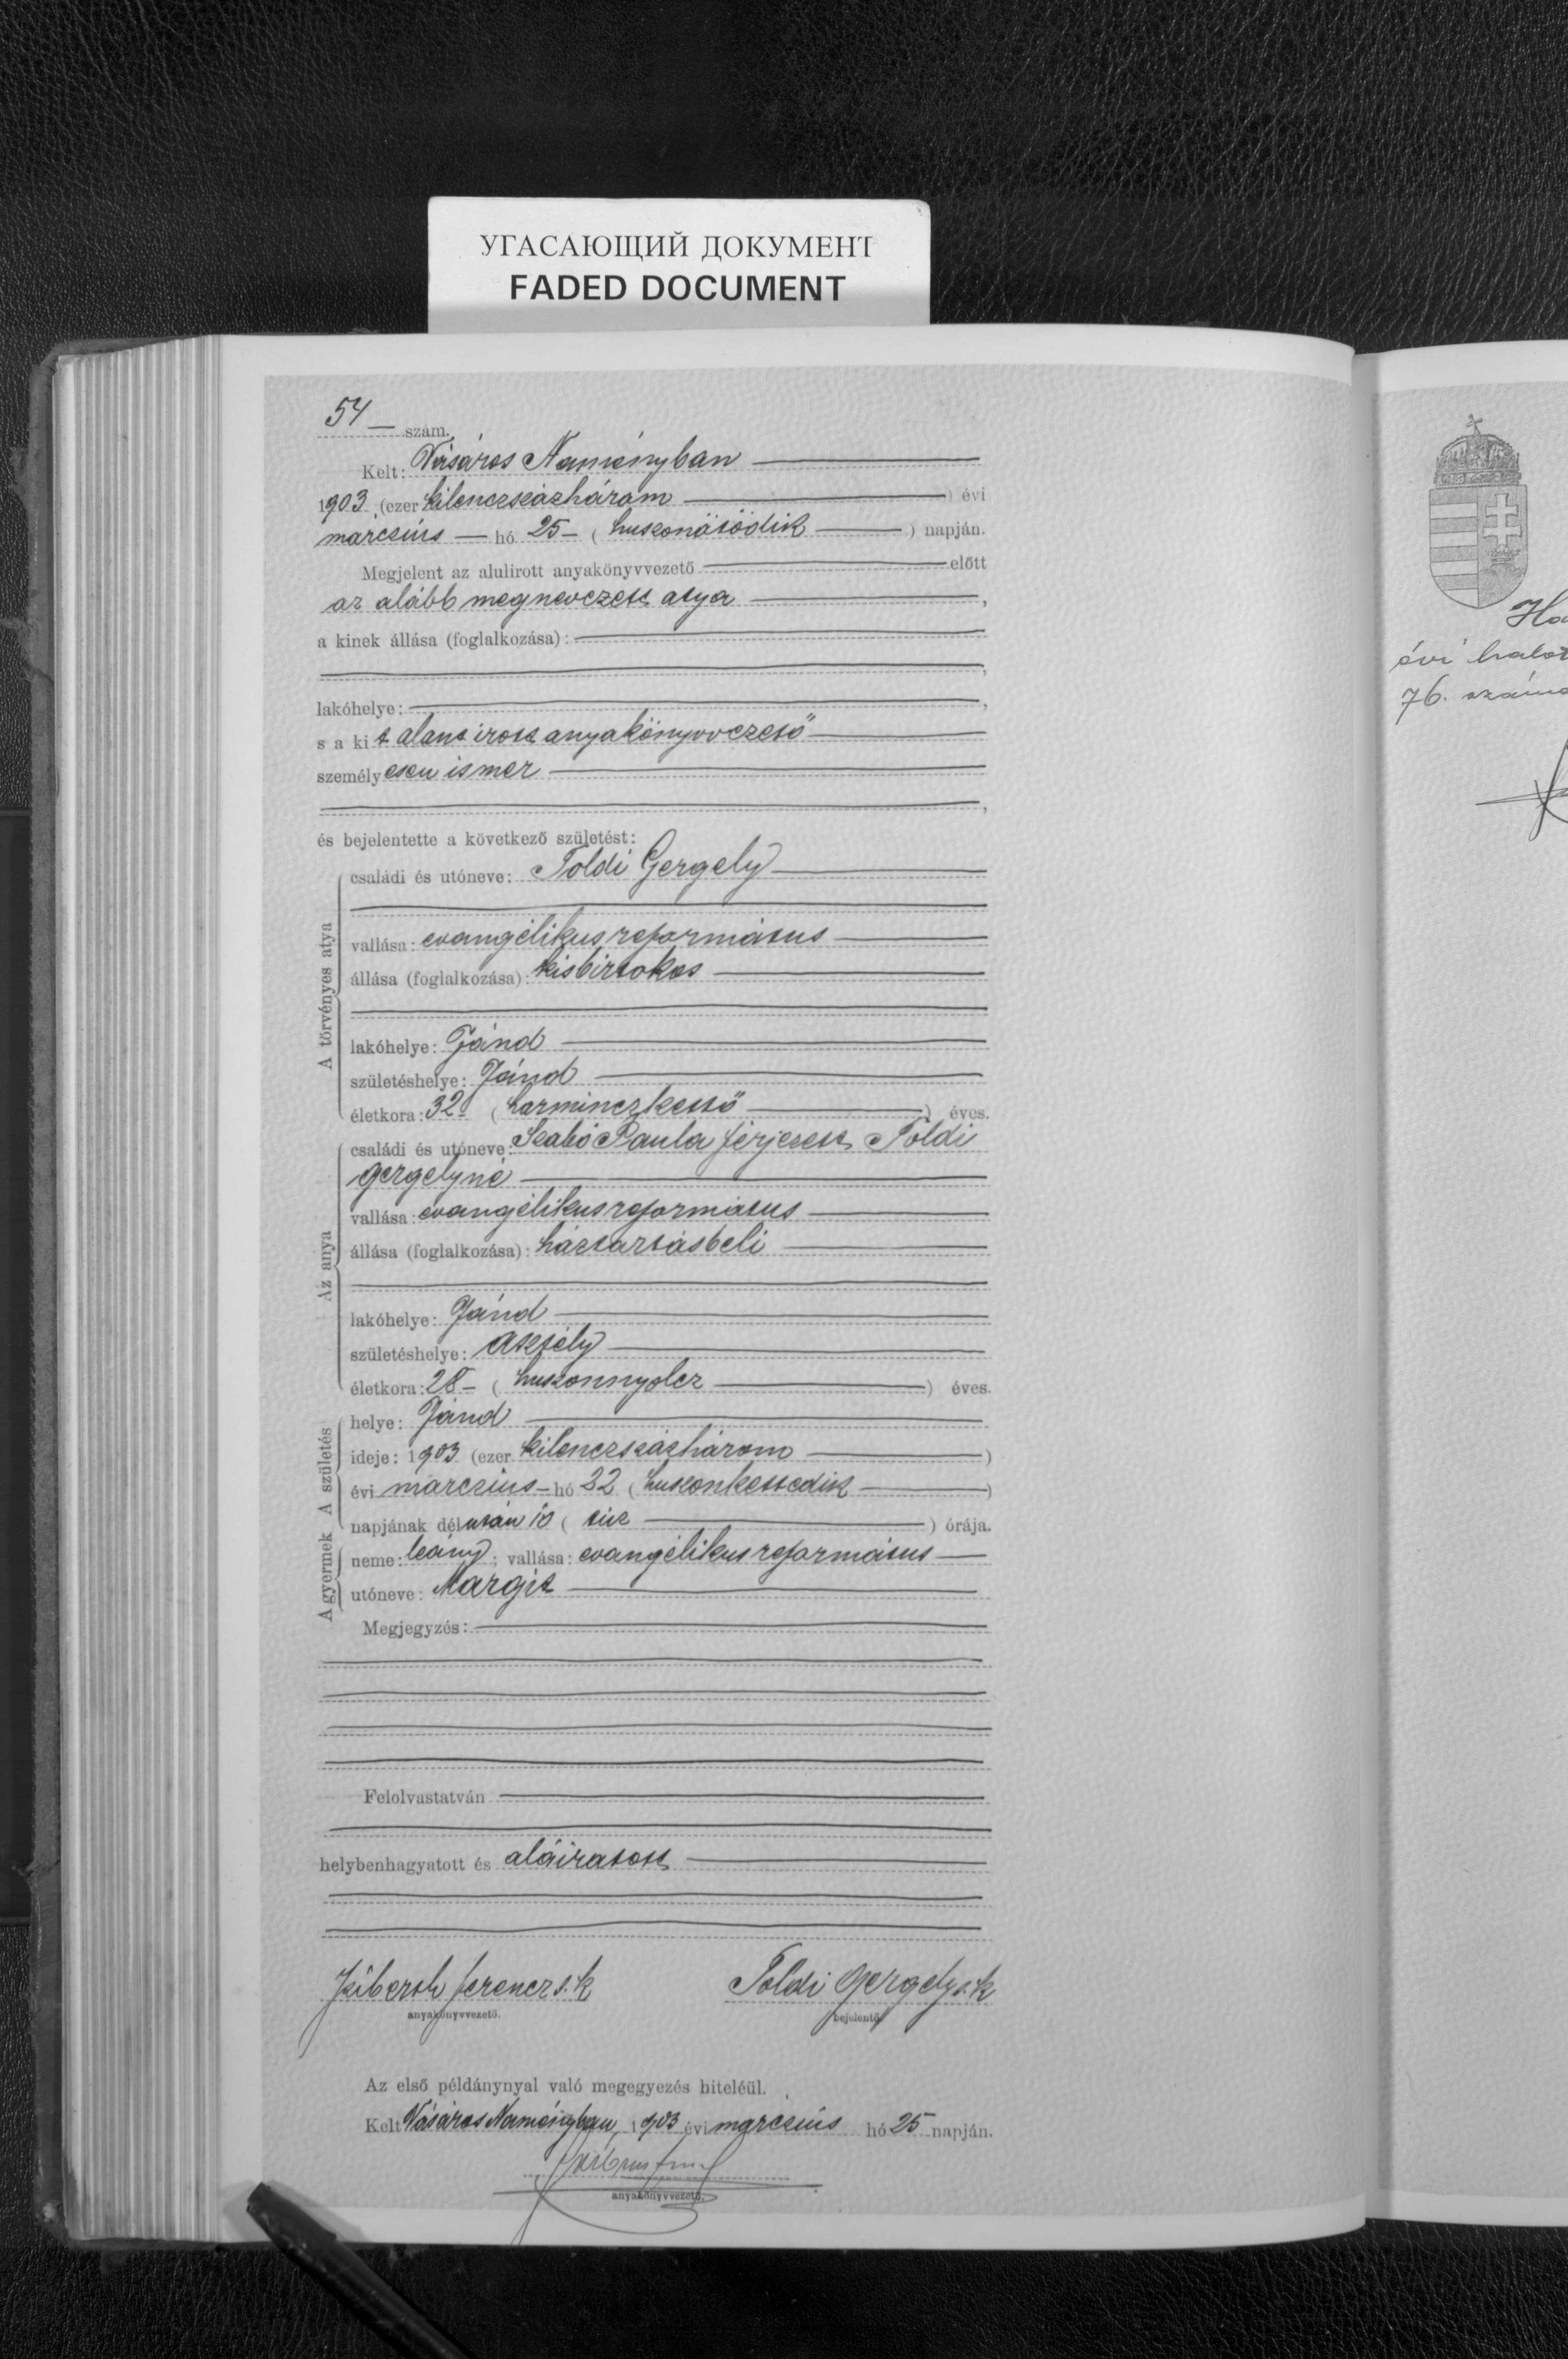 УГАСАЮЩИЙ ДОКУМЕНТ
FADED DOCUMENT
54 szám.
Kelt: Vásáros Naményban
1903 (ezer kilenczszázhárom ) évi
márczius hó 25 ( huszonötödik ) napján.
Megjelent az alulirott anyakönyvvezető előtt
az alább megnevezett atya ,
a kinek állása (foglalkozása):
,
lakóhelye: ,
s a kit alant irott anyakönyvvezető
személyesen ismer
,
és bejelentette a következő születést:
A törvényes atya
családi és utóneve: Toldi Gergely
vallása: evangélikus református
állása (foglalkozása): kisbirtokos
lakóhelye: Jánd
születéshelye: Jánd
életkora: 32 ( harminczkettő ) éves.
Az anya
családi és utóneve: Szabó Paula férjezett Toldi
Gergelyné
vallása: evangélikus református
állása (foglalkozása): háztartásbeli
lakóhelye: Jánd
születéshelye:
életkora: 28 ( huszonnyolcz ) éves.
A születés
helye: Jánd
ideje: 1903 (ezer kilenczszázhárom )
évi márczius hó 22 ( huszonkettedik )
napjának délután 10 ( tiz ) órája.
A gyermek
neme: leány; vallása: evangélikus református
utóneve: Margit
Megjegyzés:
Felolvastatván
helybenhagyatott és aláiratott
Ferencz s.k Toldi Gergely s.k
anyakönyvvezető. bejelentő.
Az első példánynyal való megegyezés hiteléül.
Kelt Vásáros Naményban, 1903 évi márczius hó 25 napján.
anyakönyvvezető.
évi
76.